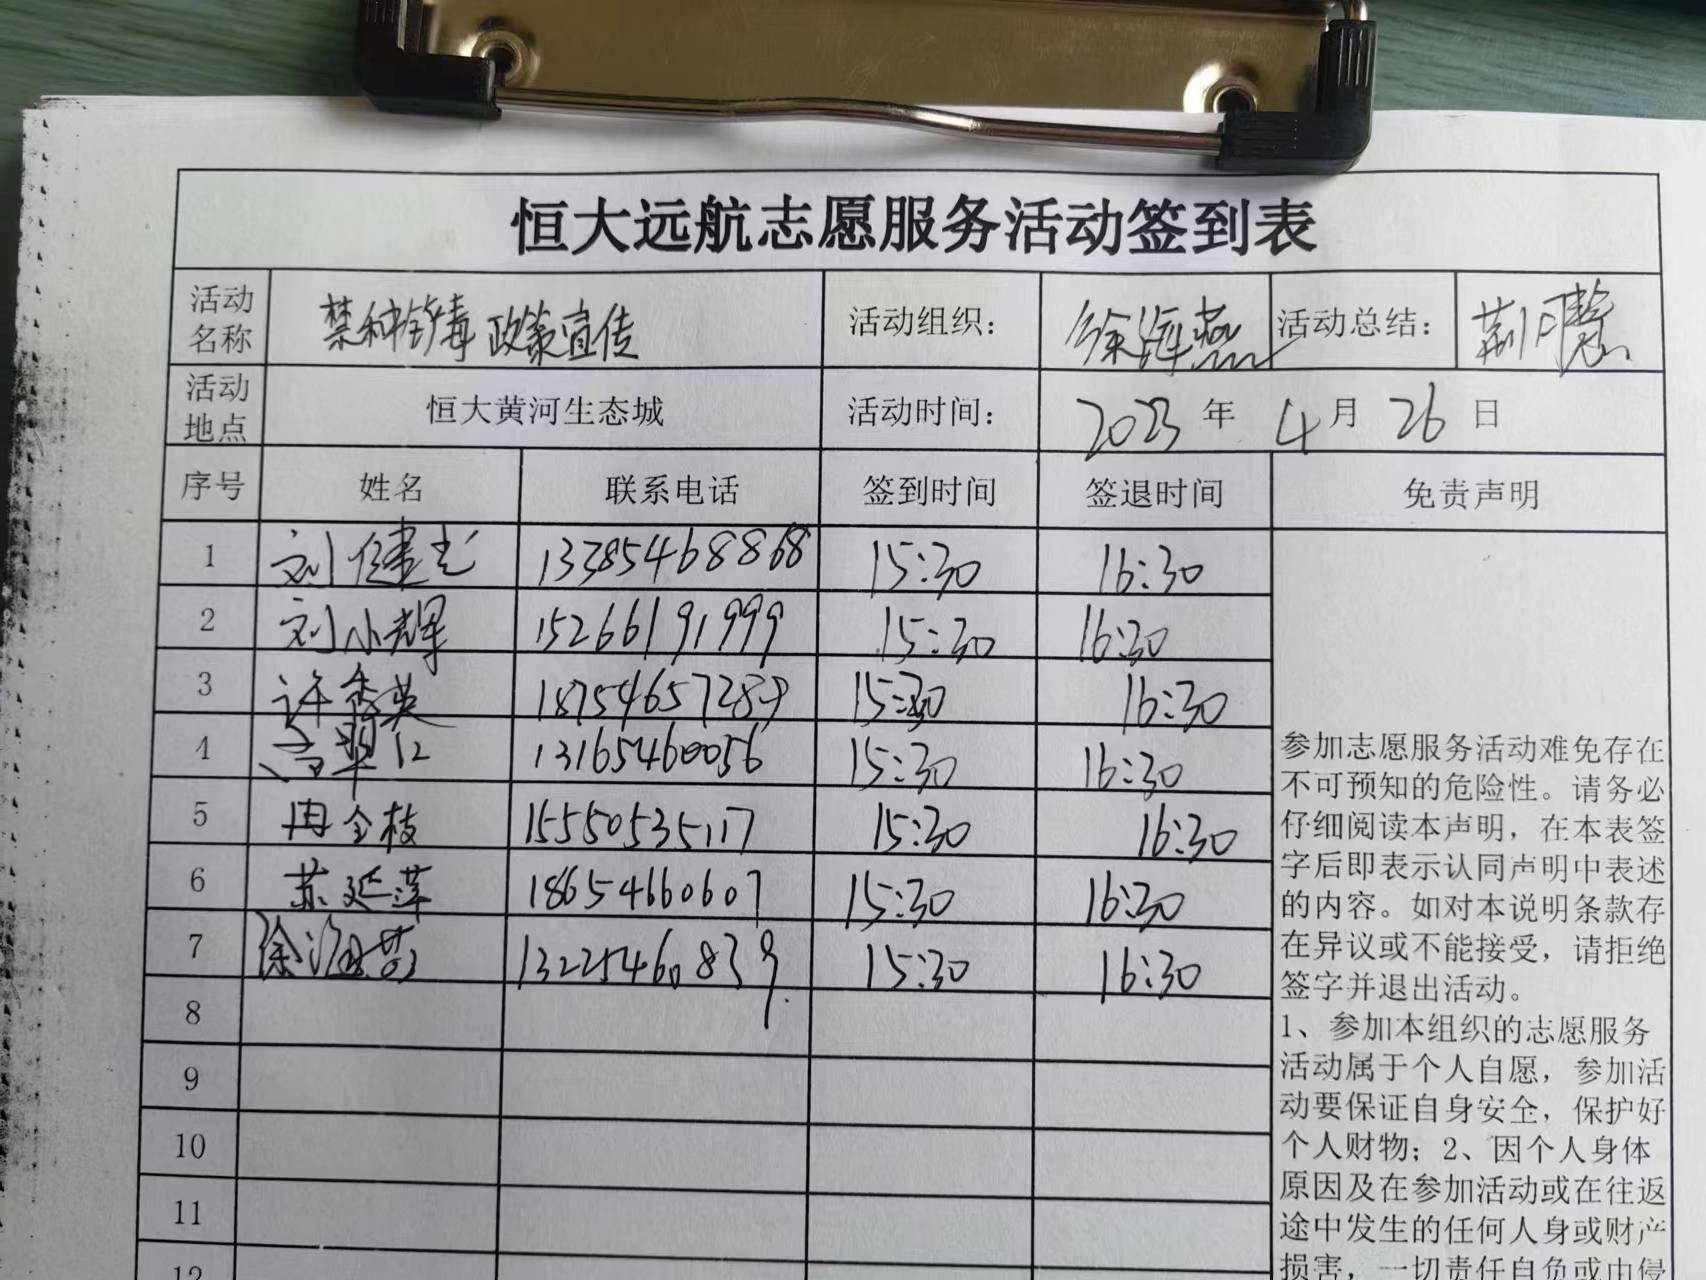 恒大远航志愿服务活动签到表
活动名称 禁种铲毒政策宣传 活动组织： 徐海燕 活动总结： 荆慧
活动地点 恒大黄河生态城 活动时间： 2023 年 4 月 26 日
序号 姓名 联系电话 签到时间 签退时间 免责声明
1 刘健志 13385468868 15:30 16:30
2 刘小辉 15266191999 15:30 16:30
3 许秀英 18754657289 15:30 16:30
4 13165460056 15:30 16:30
5 冉全枝 15550535117 15:30 16:30
6 苏延萍 18654660607 15:30 16:30
7 徐海燕 13225460839 15:30 16:30
8
9
10
11
12
参加志愿服务活动难免存在
不可预知的危险性。请务必
仔细阅读本声明，在本表签
字后即表示认同声明中表述
的内容。如对本说明条款存
在异议或不能接受，请拒绝
签字并退出活动。
1、参加本组织的志愿服务
活动属于个人自愿，参加活
动要保证自身安全，保护好
个人财物；2、因个人身体
原因及在参加活动或在往返
途中发生的任何人身或财产
损害，一切责任自负或由侵